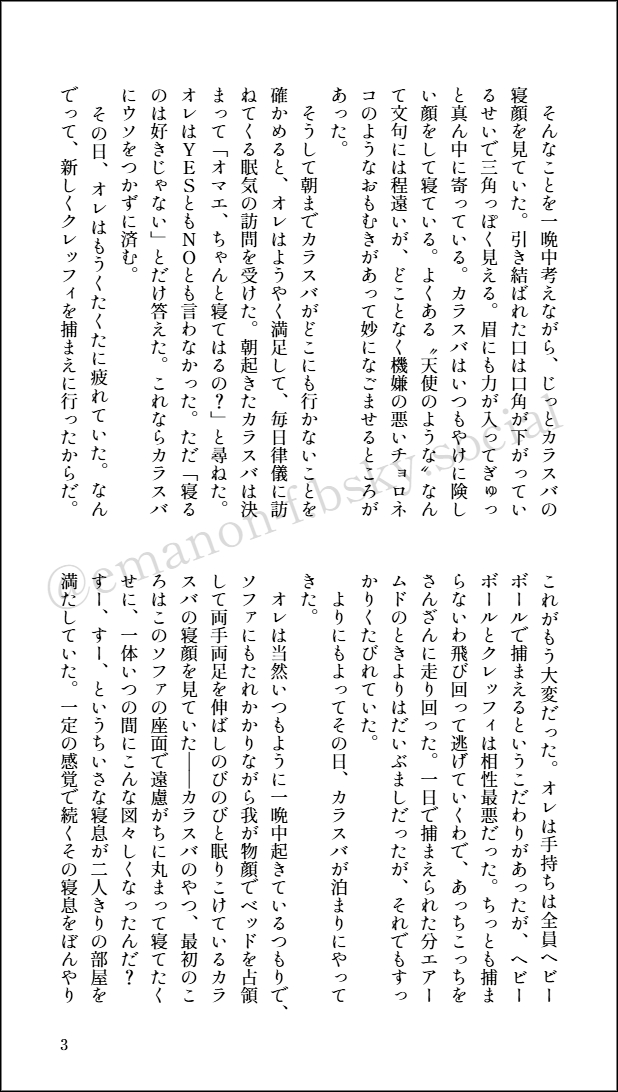 そんなことを一晩中考えながら、じっとカラスバの
寝顔を見ていた。引き結ばれた口は口角が下がってい
るせいで三角っぽく見える。眉にも力が入ってぎゅっ
と真ん中に寄っている。カラスバはいつもやけに険し
い顔をして寝ている。よくある〝天使のような〟なん
て文句には程遠いが、どことなく機嫌の悪いチョロネ
コのようなおもむきがあって妙になごませるところが
あった。
そうして朝までカラスバがどこにも行かないことを
確かめると、オレはようやく満足して、毎日律儀に訪
ねてくる眠気の訪問を受けた。朝起きたカラスバは決
まって「オマエ、ちゃんと寝てはるの？」と尋ねた。
オレはＹＥＳともＮＯとも言わなかった。ただ「寝る
のは好きじゃない」とだけ答えた。これならカラスバ
にウソをつかずに済む。
その日、オレはもうくたくたに疲れていた。なん
でって、新しくクレッフィを捕まえに行ったからだ。
これがもう大変だった。オレは手持ちは全員ヘビー
ボールで捕まえるというこだわりがあったが、ヘビー
ボールとクレッフィは相性最悪だった。ちっとも捕ま
らないわ飛び回って逃げていくわで、あっちこっちを
さんざんに走り回った。一日で捕まえられた分エアー
ムドのときよりはだいぶましだったが、それでもすっ
かりくたびれていた。
よりにもよってその日、カラスバが泊まりにやって
きた。
オレは当然いつもように一晩中起きているつもりで、
ソファにもたれかかりながら我が物顔でベッドを占領
して両手両足を伸ばしのびのびと眠りこけているカラ
スバの寝顔を見ていた――カラスバのやつ、最初のこ
ろはこのソファの座面で遠慮がちに丸まって寝てたく
せに、一体いつの間にこんな図々しくなったんだ？
すー、すー、というちいさな寝息が二人きりの部屋を
満たしていた。一定の感覚で続くその寝息をぼんやり
3
@emanon-f.bsky.social